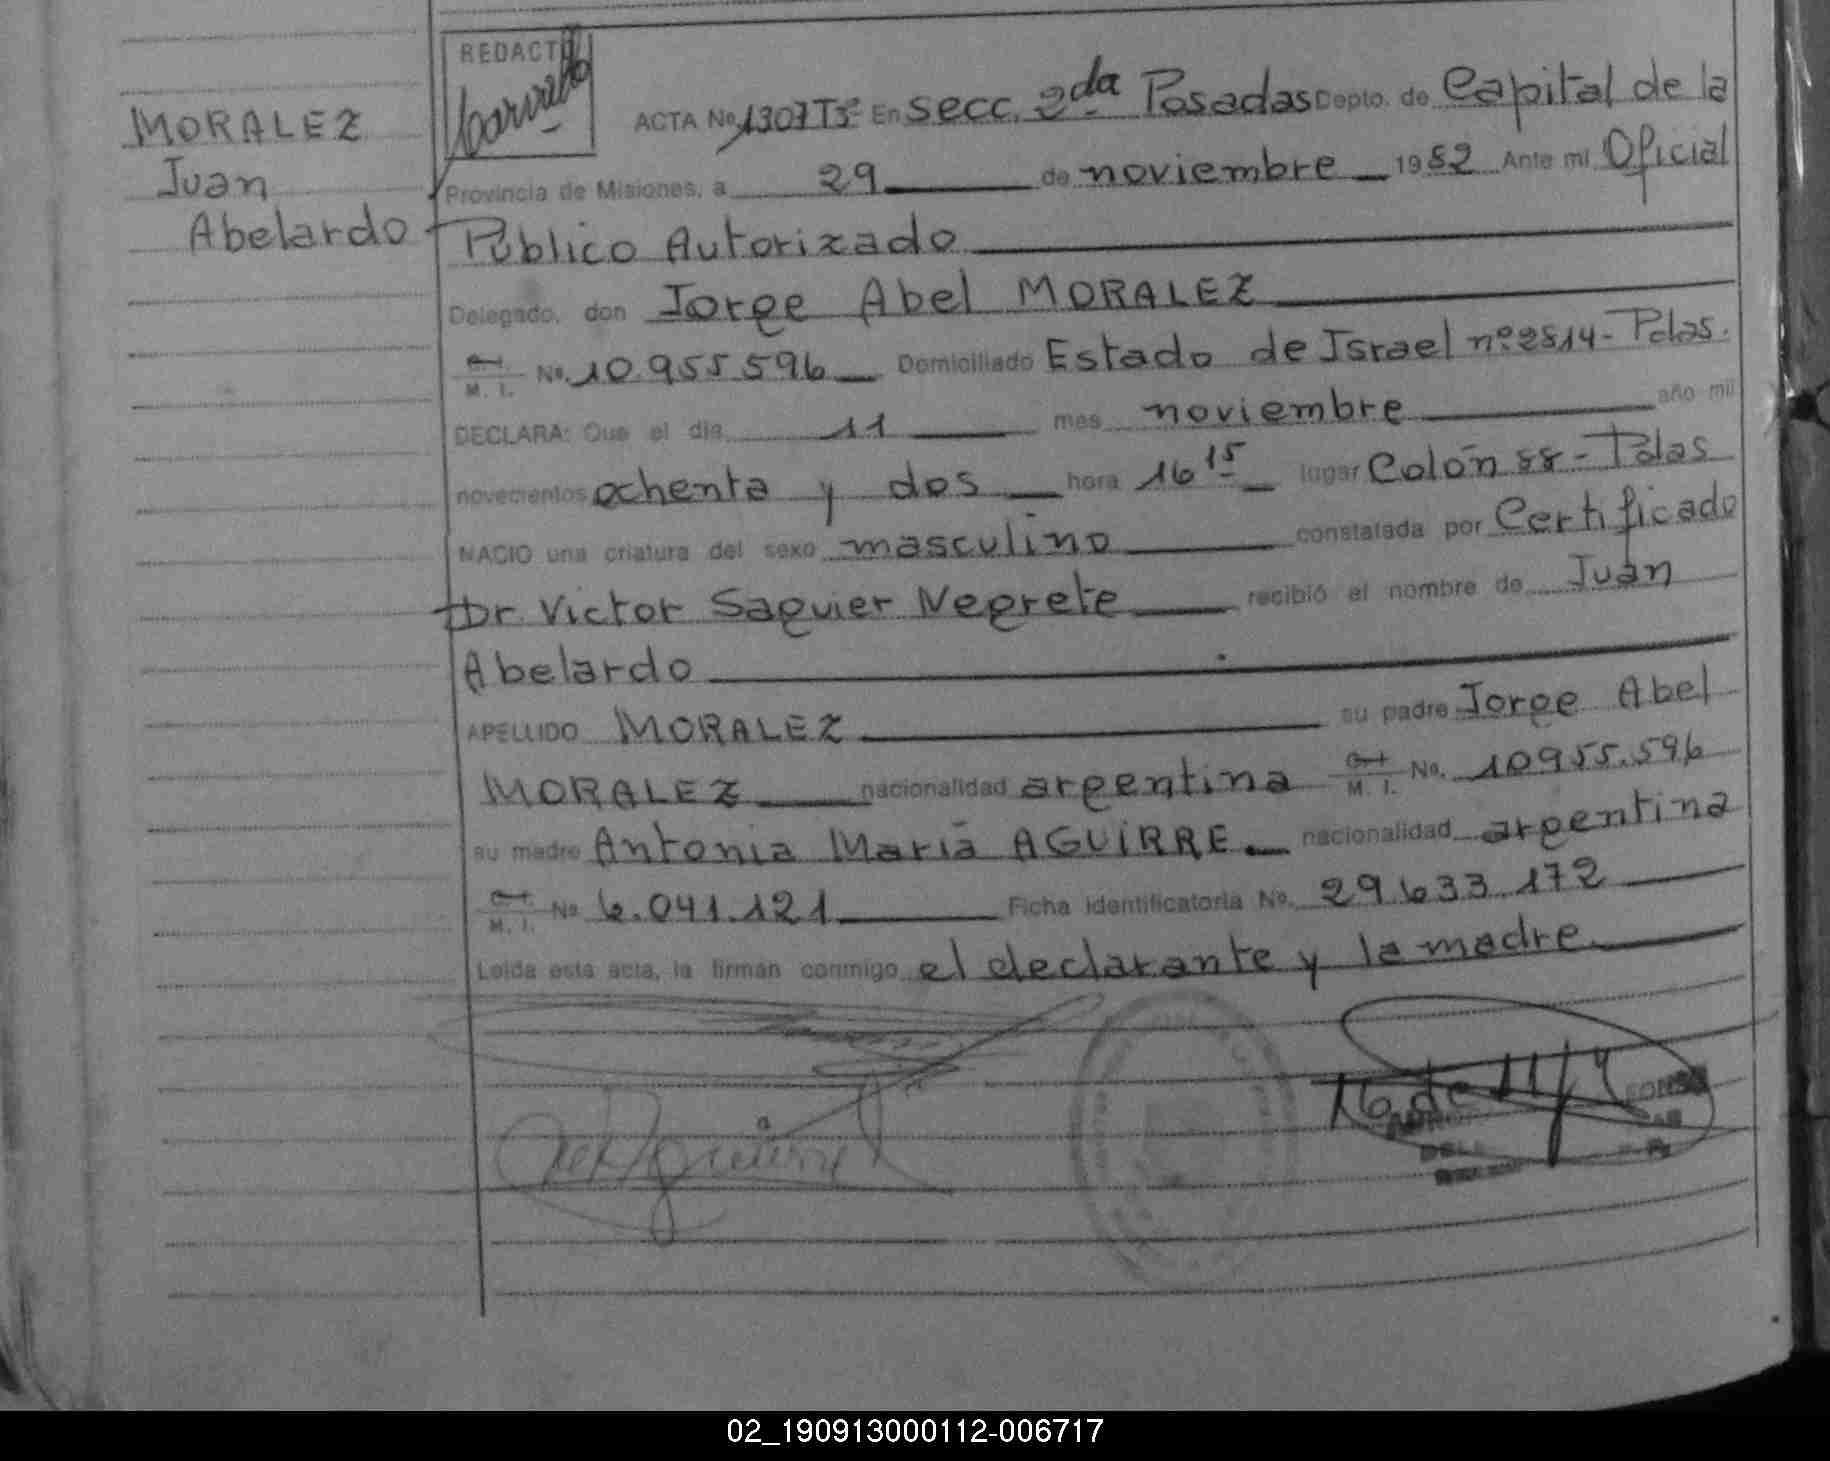 MORALEZ
Juan
Abelardo
REDACTÓ
ACTA No. 1307 Tº En secc. 2da Posadas Depto. de Capital de la
Provincia de Misiones, a 29 de noviembre 1982 Ante mi Oficial
Público Autorizado
Delegado, don Jorge Abel MORALEZ
M. I. No. 10.955.596 Domiciliado Estado de Israel nº 2814 - Pdas.
DECLARA: Que el día 11 mes noviembre año mil
novecientos ochenta y dos hora 16 15 lugar Colón 88 - Pdas
NACIO una criatura del sexo masculino constatada por Certificado
Dr. Victor Saguier Negrete recibió el nombre de Juan
Abelardo
APELLIDO MORALEZ su padre Jorge Abel
MORALEZ nacionalidad argentina M. I. No. 10955.596
su madre Antonia María AGUIRRE nacionalidad argentina
M. I. No 6.041.121 Ficha identificatoria No. 29.633.172
Leída esta acta, la firman conmigo el declarante y la madre
02_190913000112-006717